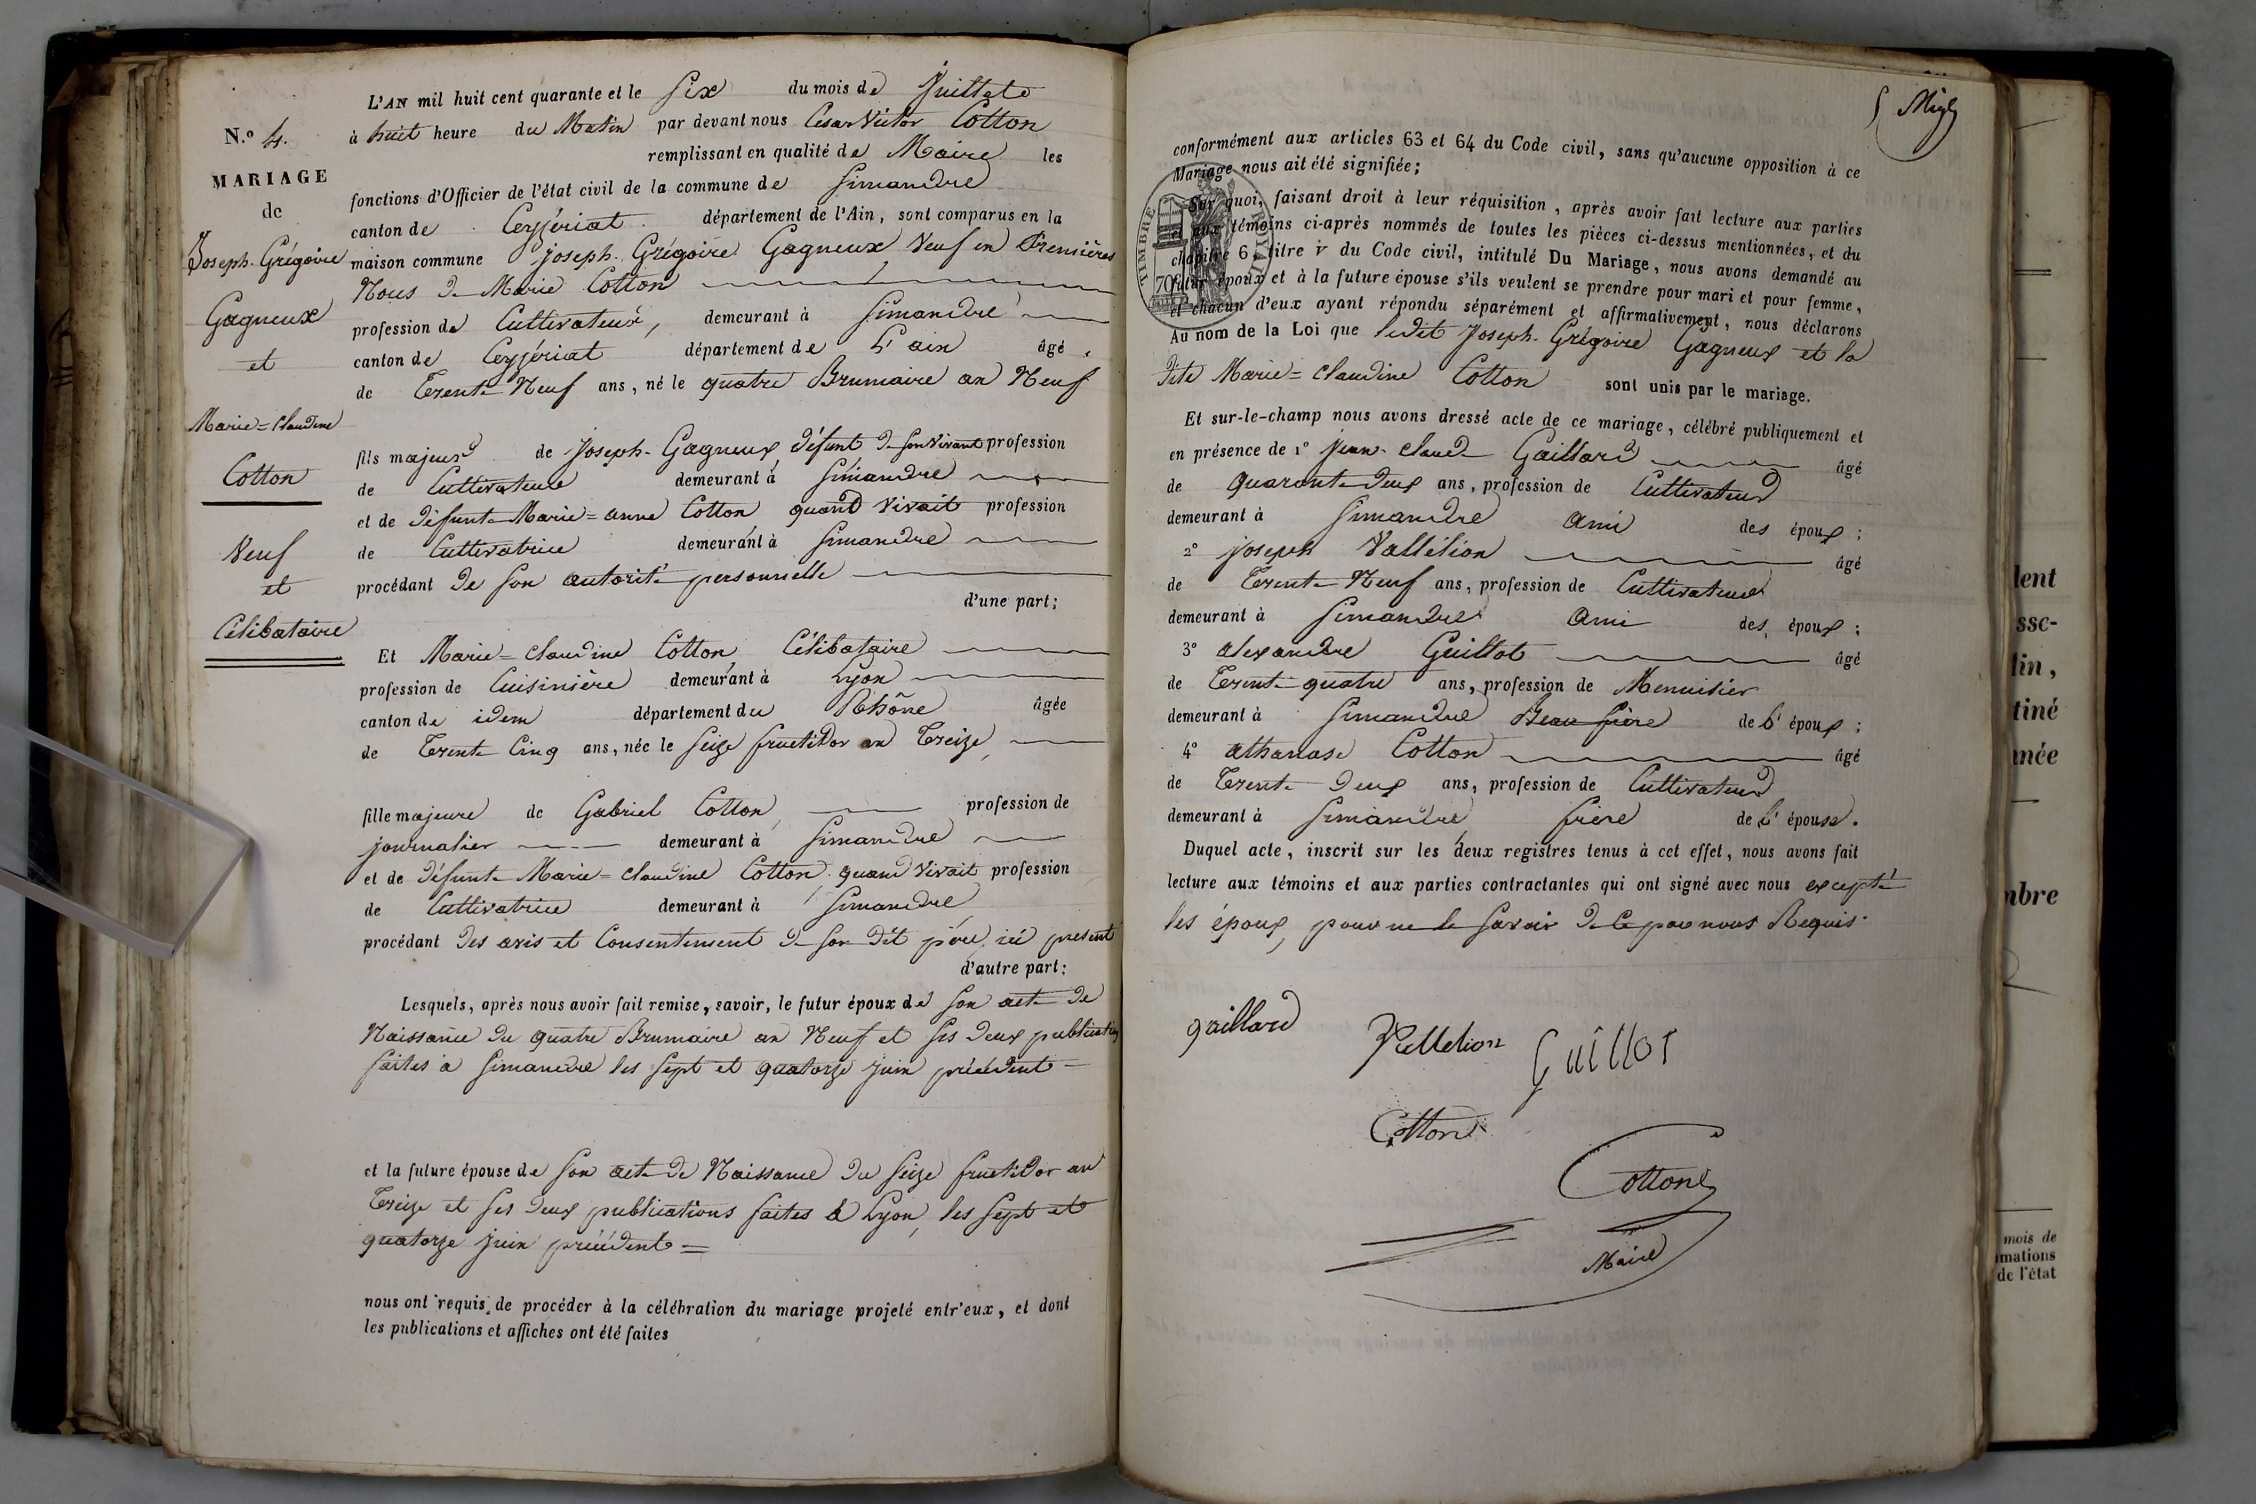 N.o 4.
MARIAGE
de
Joseph-Grégoire
Gagneux
et
Marie=Claudine
Cotton
Veuf
et
Célibataire
L'AN mil huit cent quarante et le Six du mois de Juillet
à huit heure du Matin par devant nous César Victor Cotton
remplissant en qualité de Maire les
fonctions d'Officier de l'état civil de la commune de Simandre
canton de Ceyzériat département de l'Ain, sont comparus en la
maison commune Joseph-Grégoire Gagneux Veuf en Premières
Nous de Marie Cotton
profession de Cultivateur, demeurant à Simandre
canton de Ceyzériat département de l'ain âgé
de Trente Neuf ans, né le quatre Brumaire an Neuf
fils majeur de Joseph-Gagneux, défunt de son vivant profession
de Cultivateur demeurant à Simandre
et de défunte Marie=anne Cotton quand vivait profession
de Cultivatrice demeurant à Simandre
procédant de son autorité personnelle
d'une part;
Et Marie=Claudine Cotton Célibataire
profession de Cuisinière demeurant à Lyon
canton de idem département du Rhône âgée
de Trente Cinq ans, née le seize fructidor an Treize,
fille majeure de Gabriel Cotton, profession de
journalier demeurant à Simandre
et de défunte Marie=Claudine Cotton quand vivait profession
de Cultivatrice demeurant à Simandre
procédant des avis et Consentement de son dit père, ici présent
d'autre part;
Lesquels, après nous avoir fait remise, savoir, le futur époux de son acte de
Naissance du quatre Brumaire an Neuf et ses deux publications
faites à Simandre les sept et quatorze juin précédent
et la future épouse de son acte de Naissance du seize fructidor an
Treize et ses deux publications faites à Lyon, les sept et
quatorze juin précédent =
nous ont requis de procéder à la célébration du mariage projeté entr'eux, et dont
les publications et affiches ont été faites
conformément aux articles 63 et 64 du Code civil, sans qu'aucune opposition à ce
Mariage nous ait été signifiée;
TIMBRE ROYAL
70
Sur quoi, faisant droit à leur réquisition, après avoir fait lecture aux parties
et aux témoins ci-après nommés de toutes les pièces ci-dessus mentionnées, et du
chapitre 6, titre v du Code civil, intitulé Du Mariage, nous avons demandé au
futur époux et à la future épouse s'ils veulent se prendre pour mari et pour femme,
et chacun d'eux ayant répondu séparément et affirmativement, nous déclarons
Au nom de la Loi que ledit Joseph-Grégoire Gagneux et la
dite Marie=Claudine Cotton sont unis par le mariage.
Et sur-le-champ nous avons dressé acte de ce mariage, célébré publiquement et
en présence de 1º Jean-Claude Gaillard âgé
de quarante deux ans, profession de Cultivateur
demeurant à Simandre ami des époux;
2º Joseph Vallélion âgé
de Trente-Neuf ans, profession de Cultivateur
demeurant à Simandre ami des époux;
3º alexandre Guillot âgé
de Trente quatre ans, profession de Menuisier
demeurant à Simandre Beau frère de l'époux;
4º athanase Cotton âgé
de Trente Deux ans, profession de Cultivateur
demeurant à Simandre frère de l'épouse.
Duquel acte, inscrit sur les deux registres tenus à cet effet, nous avons fait
lecture aux témoins et aux parties contractantes qui ont signé avec nous excepté
les époux, pour ne le savoir de ce par nous Requis.
gaillard
Guillot
Cotton
Cotton
Maire
lent
lin,
tiné
mbre
mois de
de l'état